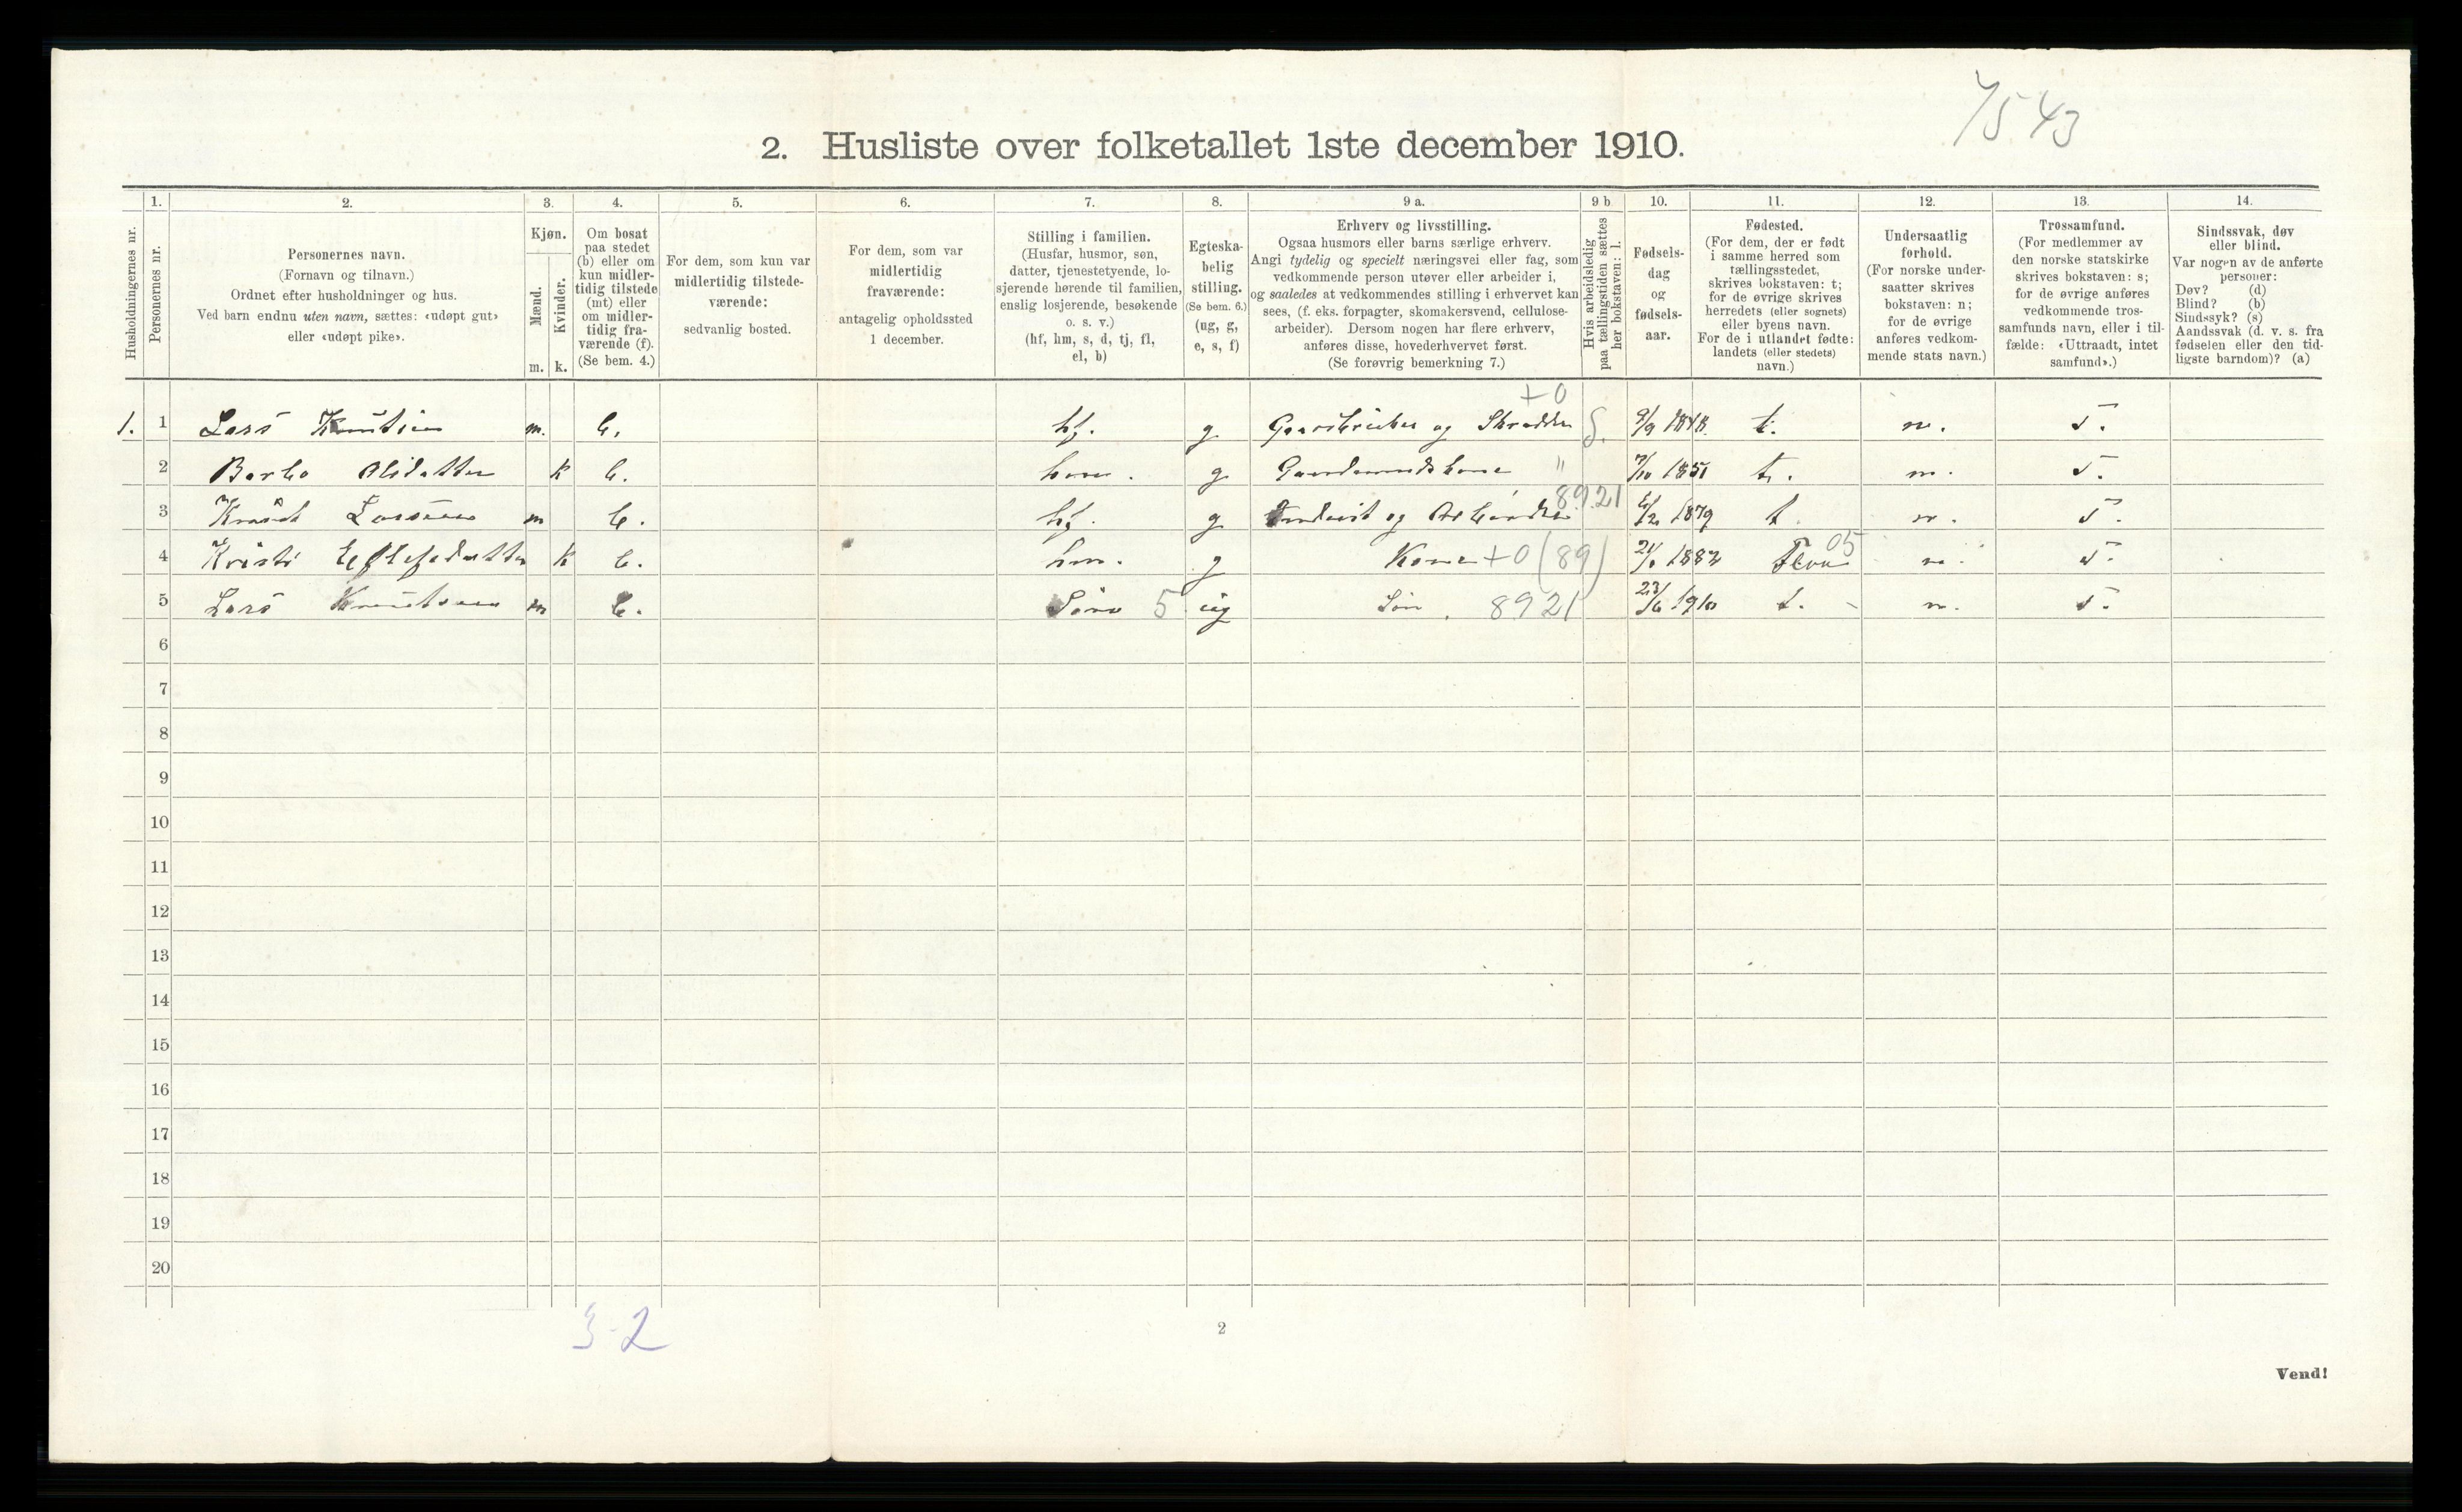 7543
2. Husliste over folketallet 1ste december 1910.
Husholdningernes nr.
1.
Personernes nr.
2.
Personernes navn.
(Fornavn og tilnavn.)
Ordnet efter husholdninger og hus.
Ved barn endnu uten navn, sættes: «udøpt gut»
eller «udøpt pike».
3.
Kjøn.
Mænd.
Kvinder.
m. k.
4.
Om bosat
paa stedet
(b) eller om
kun midler-
tidig tilstede
(mt) eller
om midler-
tidig fra-
værende (f).
(Se bem. 4.)
5.
For dem, som kun var
midlertidig tilstede-
værende:
sedvanlig bosted.
6.
For dem, som var
midlertidig
fraværende:
antagelig opholdssted
1 december.
7.
Stilling i familien.
(Husfar, husmor, søn,
datter, tjenestetyende, lo-
sjerende hørende til familien,
enslig losjerende, besøkende
o. s. v.)
(hf, hm, s, d, tj, fl,
el, b)
8.
Egteska-
belig
stilling.
(Se bem. 6.)
(ug, g,
e, s, f)
9 a.
Erhverv og livsstilling.
Ogsaa husmors eller barns særlige erhverv.
Angi tydelig og specielt næringsvei eller fag, som
vedkommende person utøver eller arbeider i,
og saaledes at vedkommendes stilling i erhvervet kan
sees, (f. eks. forpagter, skomakersvend, cellulose-
arbeider). Dersom nogen har flere erhverv,
anføres disse, hovederhvervet først.
(Se forøvrig bemerkning 7.)
9 b
Hvis arbeidsledig
paa tællingstiden sættes
her bokstaven: l.
10.
Fødsels-
dag
og
fødsels-
aar.
11.
Fødested.
(For dem, der er født
i samme herred som
tællingsstedet,
skrives bokstaven: t;
for de øvrige skrives
herredets (eller sognets)
eller byens navn.
For de i utlandet fødte:
landets (eller stedets)
navn.)
12.
Undersaatlig
forhold.
(For norske under-
saatter skrives
bokstaven: n;
for de øvrige
anføres vedkom-
mende stats navn.)
13.
Trossamfund.
(For medlemmer av
den norske statskirke
skrives bokstaven: s;
for de øvrige anføres
vedkommende tros-
samfunds navn, eller i til-
fælde: «Uttraadt, intet
samfund».)
14.
Sindssvak, døv
eller blind.
Var nogen av de anførte
personer:
Døv? (d)
Blind? (b)
Sindssyk? (s)
Aandssvak (d. v. s. fra
fødselen eller den tid-
ligste barndom)? (a)
+0
1. 1 Lars Knutsen m. b. hf. g Gaardbruker og Skrædder 9/9 1848 t. n. s.
2 k b. g Gaardmandskone " 7/10 1851 t. n. s.
8921
3 Knut Larsen m b. hf. g 1879 t n. s.
4 Kristi k b. hm. g Kone +0 (89) 1882 05 n. s.
5 Lars Knutsen m b. Søn 5 ug Søn. 8921 23/6 1910 t. - n. s.
6
7
8
9
10
11
12
13
14
15
16
17
18
19
20
3-2
2
Vend!